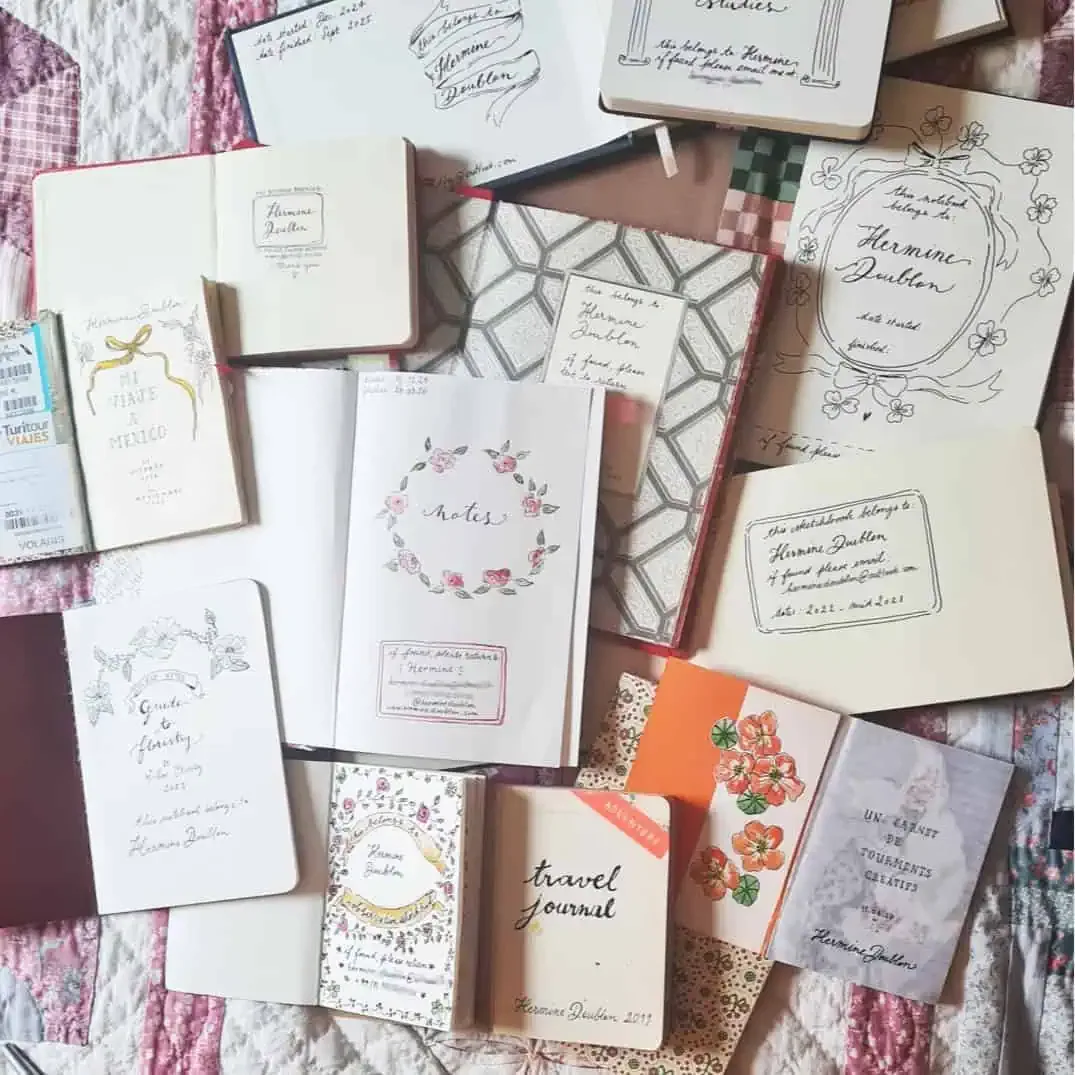 date started: Dec. 2024
date finished: Sept 2025
this belongs to
Hermine
Doublon
studies
this belongs to Hermine
if found please email me at:
Hermine
Doublon
Thank you
this notebook
belongs to:
Hermine
Doublon
date started
finished:
if found please
this belongs to
Hermine
Doublon
if found, please
return
Hermine Doublon
MI
VIAJE
A
MEXICO
Turitour
VIAJES
VOLARIS
notes
if found, please return to
Hermine
@herminedoublon
this sketchbook belongs to:
Hermine Doublon
if found please email
herminedoublon@outlook.com
dates: 2022 - mid 2023
Guide
to
floristry
this notebook belongs to
Hermine Doublon
this belongs to
Hermine
Doublon
if found, please return
ADVENTURE
travel
journal
Hermine Doublon 2019
UN CARNET
DE
TOURMENTS
CRÉATIFS
Hermine Doublon